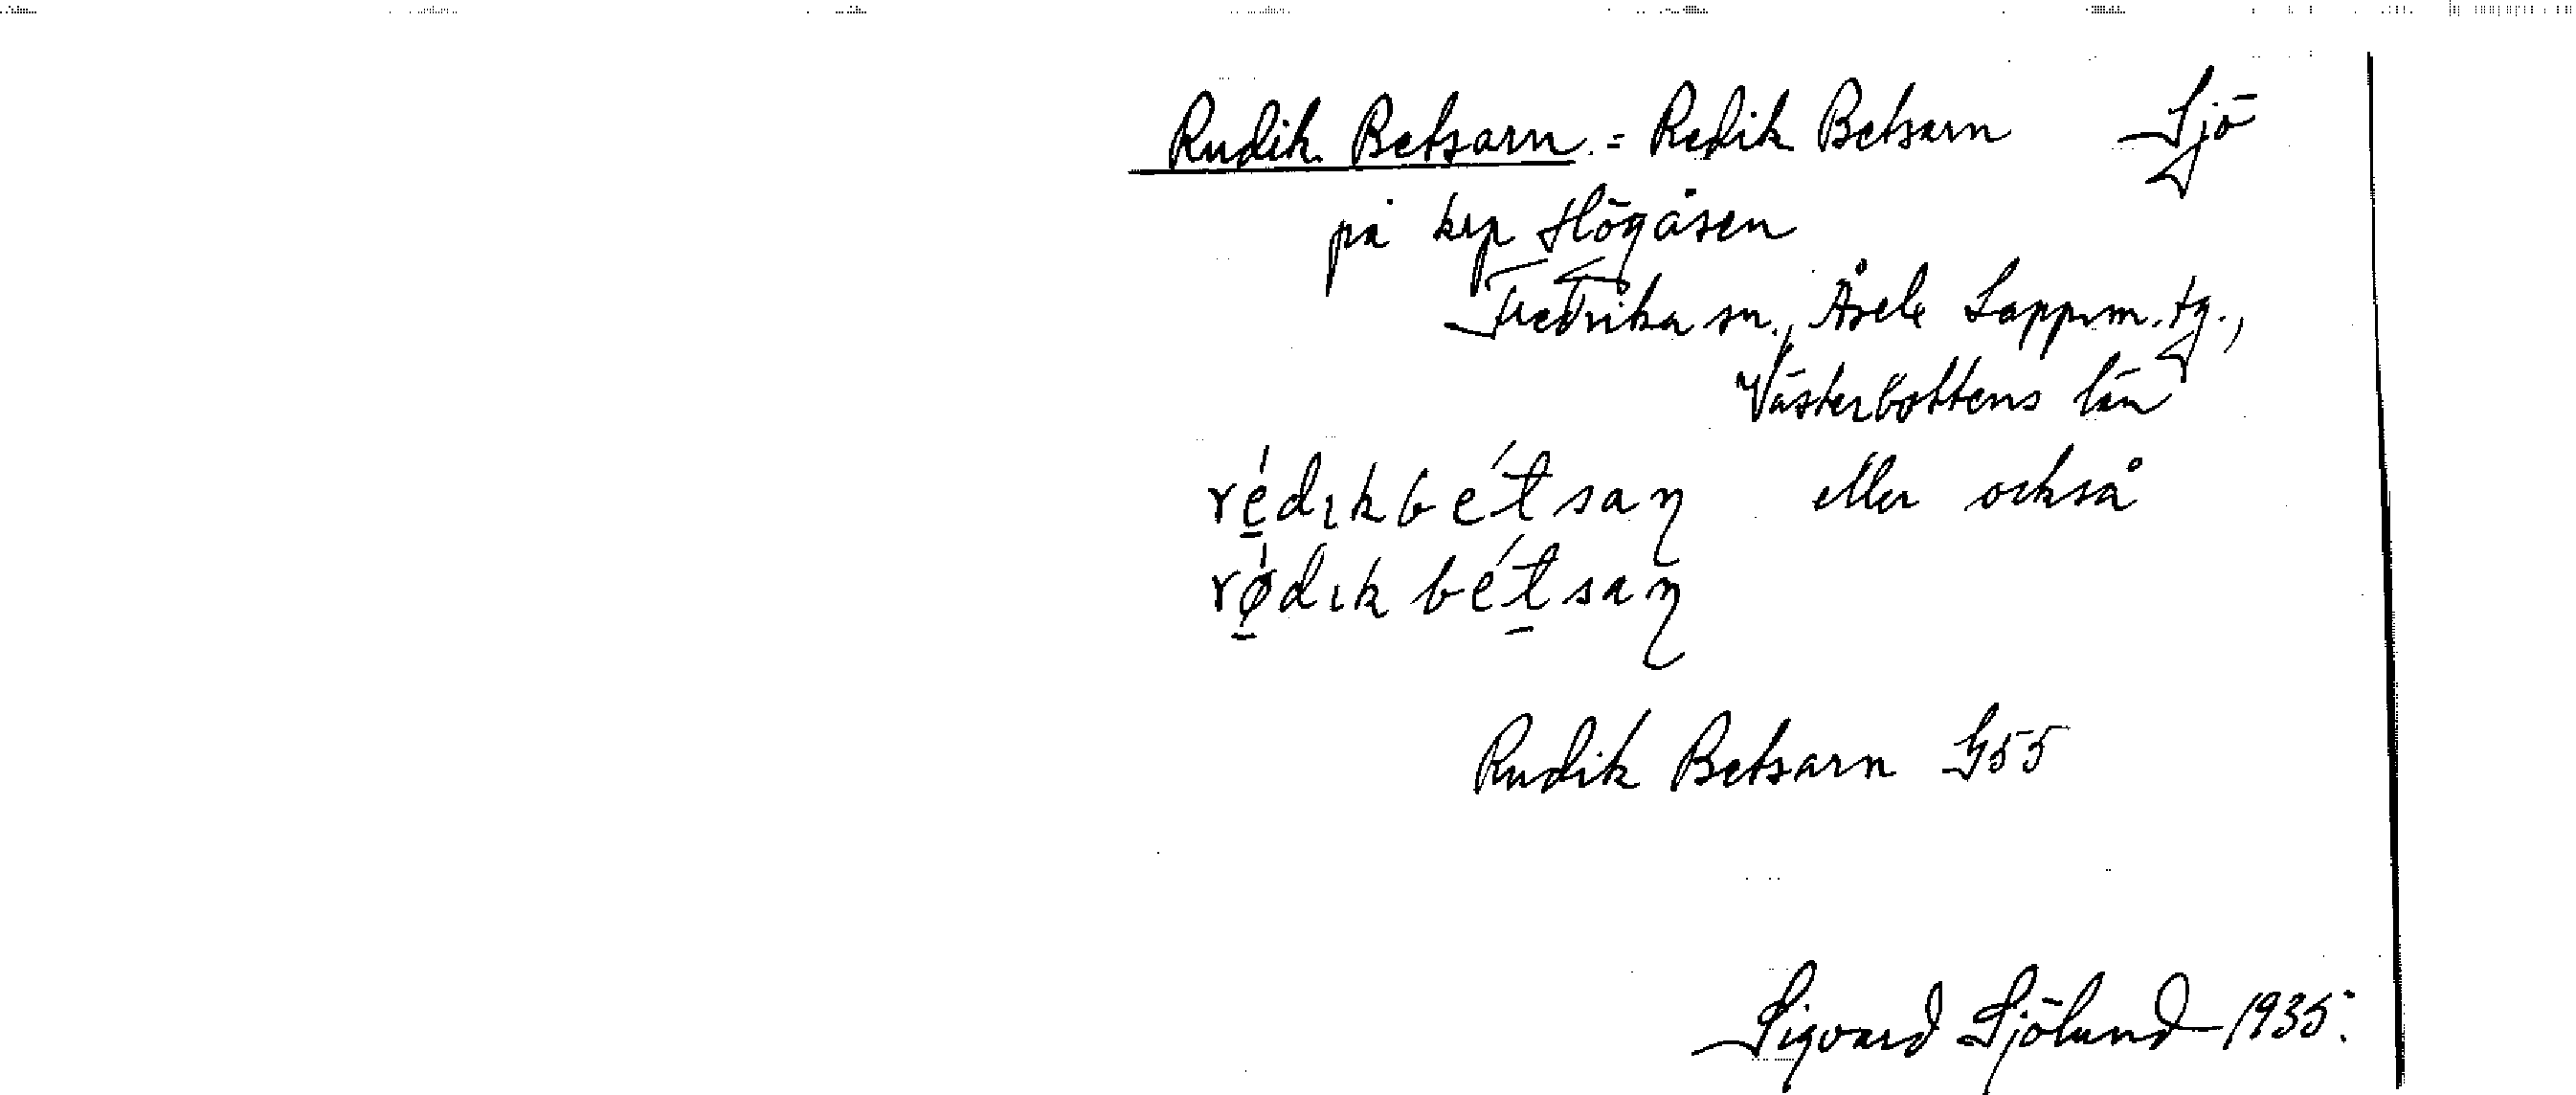 Rudik Betsarn = Redik Betsarn Sjö
på krp Högåsen
Fredrika sn., Åsele Lappm. tg.,
Västerbottens län
ré̱dıkbét̄saɳ eller också
rǿ̱dık béṯ̄saɳ
Rudik Betsarn G55
Sigvard Sjölund 1935.